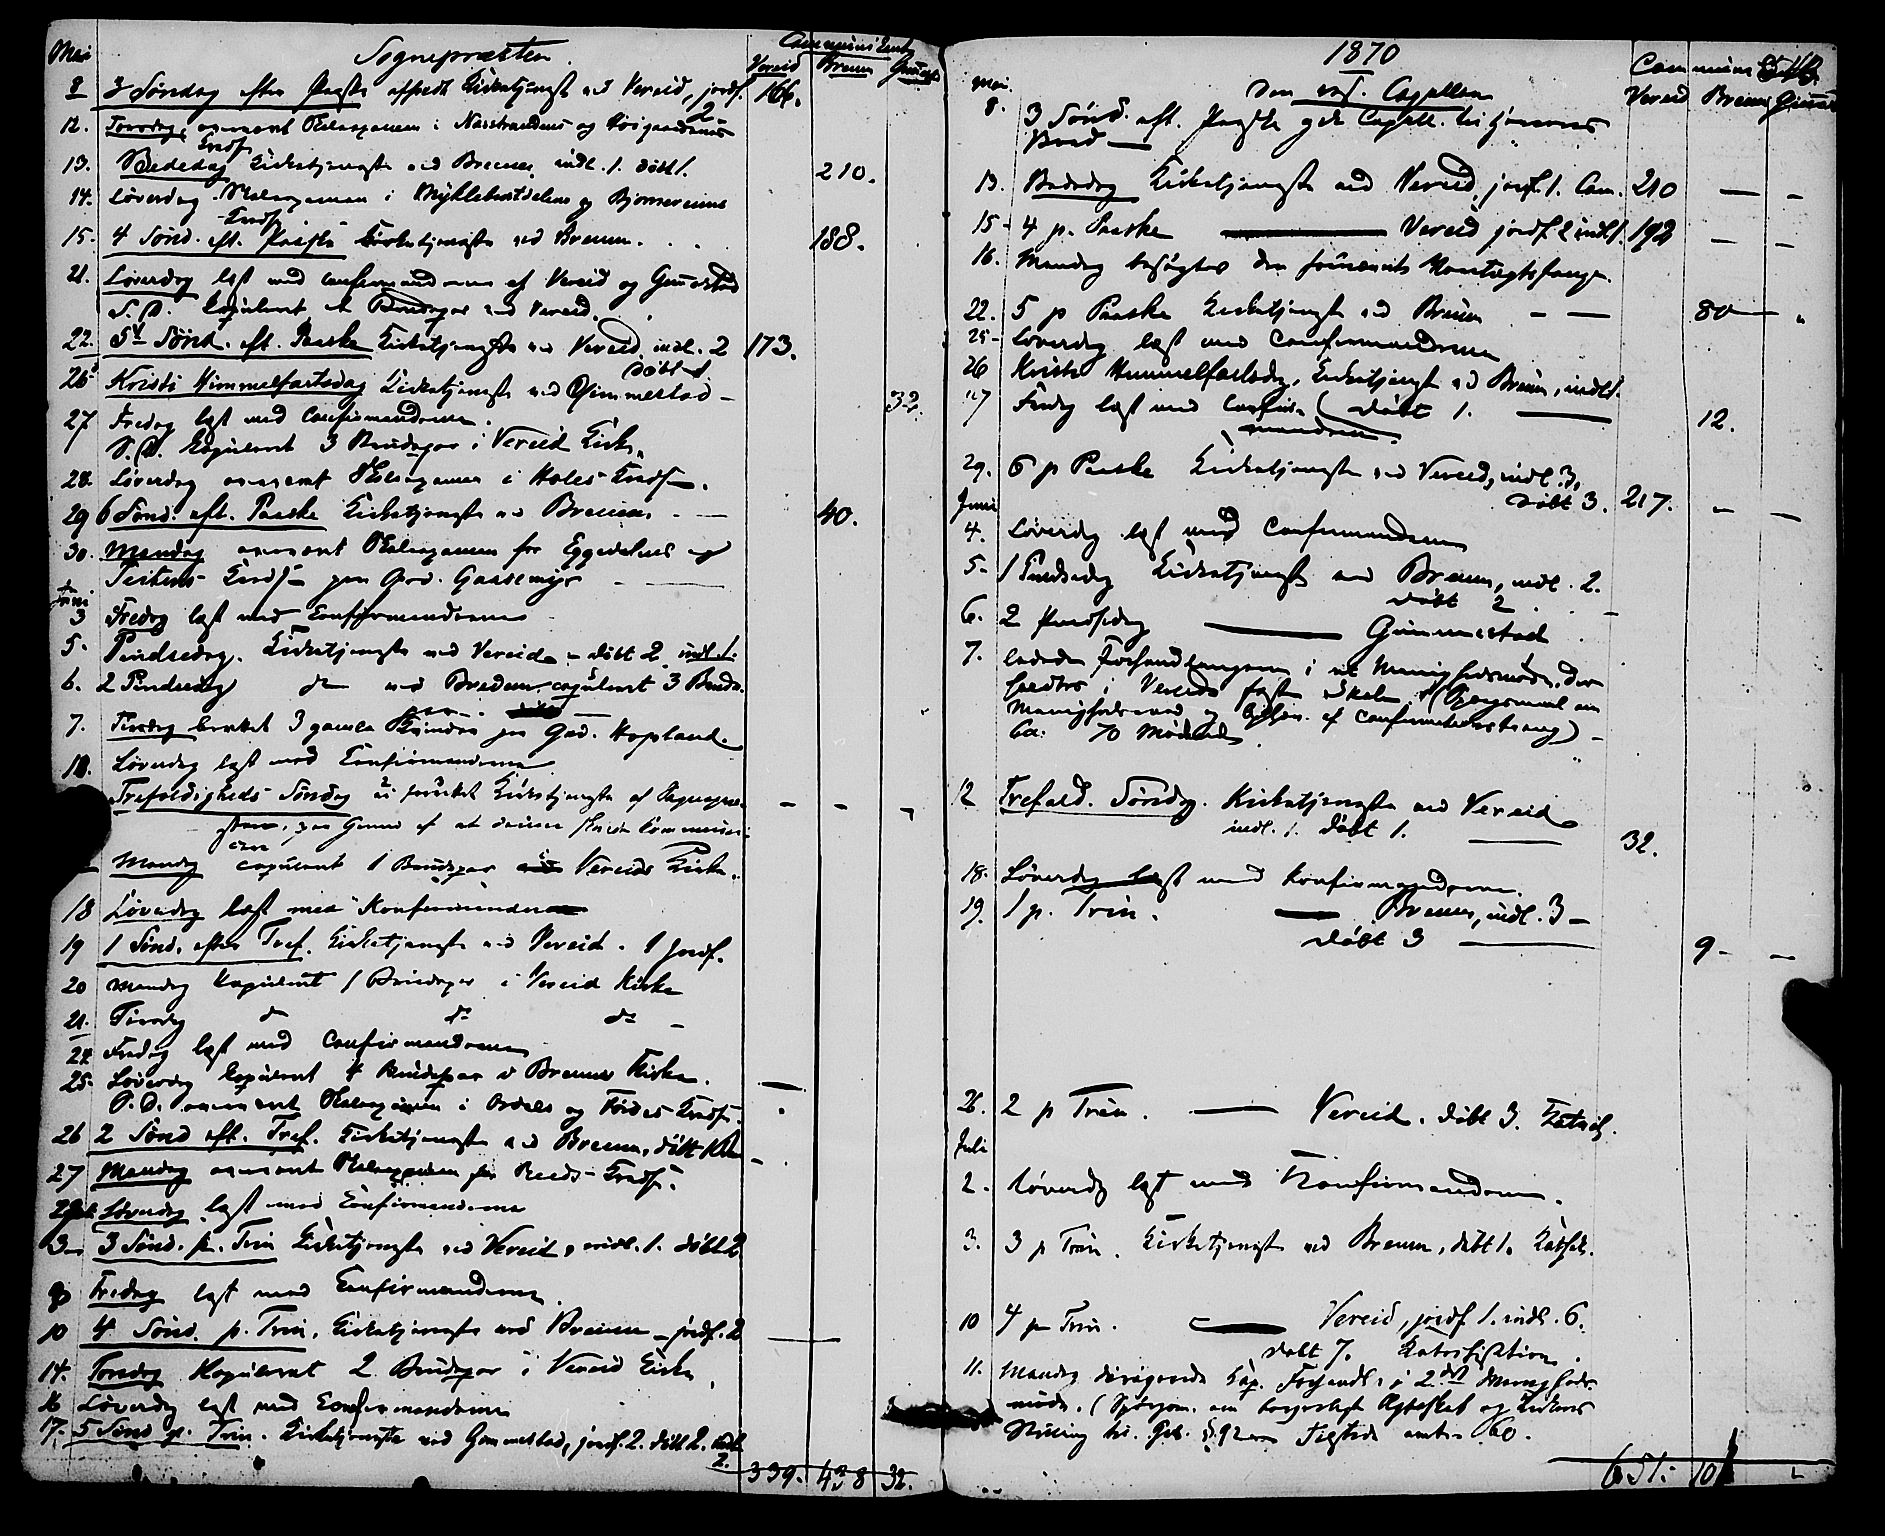 Mai
Sognepræsten.
Communicanter
Vereid Bremn Gimst
8 3 Søndag efter Paaske afholdt Kirketjeneste ved Vereid, jordf. 2 166.
12. Torsdag, overværet Skoleexamen i og
13. Bededag Kirketjeneste ved Bremn, indl. 1. døbt 1. 210.
14. Løverdag Skoleexamen i Myklebustdalens og
Kreds
15. 4 Sønd. eft. Paaske Kirketjeneste ved Bremn. 188.
21. Løverdag læst med Confirmanderne af Vereid og Gimmestad
S. D. Kopuleret et Brudepar ved Vereid.
22. 5te Sønd. eft. Paaske Kirketjeneste ved Vereid, indl. 2 173.
døbt 1
26 Kristi Himmelfartsdag Kirketjeneste ved Gimmestad – 32.
27 Fredag læst med Confirmanderne.
S. D. Kopuleret 3 Brudepar i Vereid Kirke.
28. Løverdag overværet Skoleexamen i Holes Kreds.
29 6 Sønd. eft. Paaske Kirketjeneste ved Bremn. 40.
30. Mandag overværet Skoleexamen for og
Kreds paa Grd. Gaasemyr
Juni
3 Fredag læst med Confirmanderne
5. Pindsedag. Kirketjeneste ved Vereid – døbt 2 indl. 1.
6. 2 Pindsedag do ved Bremn copuleret 3 Brude-
par.
7. Tirsdag besøket 3 gamle Kvinder paa Grd. Hopland.
Løverdag læst med Confirmanderne
Trefoldigheds Søndag ei forrettet Kirketjeneste af Sognepræ-
sten, paa Grund af at denne
Mandag copuleret 1 Brudepar Vereids Kirke.
18 Løverdag læst med Konfirmanderne
19 1 Sønd. efter Tref. Kirketjeneste ved Vereid. 1 jordf.
20 Mandag kopuleret 1 Brudepar i Vereid Kirke
21. Tirsdag do do do –
24 Fredag læst med Confirmanderne
25. Løverdag kopuleret 4 Brudepar i Bremn Kirke.
S. D. overværet Skoleexamen i Ordals og Førdes Kreds.
26 2 Sønd eft. Tref. Kirketjeneste ved Bremn, døbt
27 Mandag overværet Skoleexamen for Reeds Kreds.
Løverdag læst med Confirmanderne
3 3 Sønd. p. Trin Kirketjeneste ved Vereid, indl. 1. døbt 2
Fredag læst med Confirmanderne
10 4 Sønd. p. Trin. Kirketjeneste ved Bremn – jordf. 2
14. Torsdag Kopuleret 2 Brudepar i Vereid Kirke
16 Løverdag læst med Confirmanderne
17. 5 Sønd p. Trin. Kirketjeneste ved Gimmestad, jordf. 2. døbt 2. indl.
2.
339. 438 32.
1870
Den resid. Capellan
Communicanter
Vereid Bremn Gimst
Mai
8. 3 Sønd. eft. Paaske
13. Bededag Kirketjeneste ved Vereid, jordf. 1. Com. 210
15 4 p. Paaske Vereid jordf 2 indl 1. 192
16. Mandag besøgtes den
22. 5 p Paaske Kirketjeneste ved Bremn 80
25 Løverdag læst med Confirmanderne
26 Kristi Himmelfartsdag, Kirketjeneste ved Bremn, indl 1.
27 Fredag læst med Confir- (døbt 1. 12.
manderne.
29. 6 p Paaske Kirketjeneste ved Vereid, indl. 3.
døbt 3. 217.
Juni
4. Løverdag læst med Confirmanderne
5. 1 Pindsedag Kirketjeneste ved Bremn, indl. 2.
døbt 2
6. 2 Pindsedag Gimmestad
7. ledede Forhandlingerne i et Menighedsmøde, der
holdtes i Vereids faste Skole. (Spørgsmaal om
Menighedsraad og Ophæv. af Confirmationstvang) –
Ca. 70 Mødende
12 Trefold. Søndag. Kirketjeneste ved Vereid
indl. 1. døbt 1. 32.
18. Løverdag læst med Konfirmanderne.
19. 1 p. Trin. Bremn, indl. 3 –
døbt 3 9 –
26. 2 p Trin. Vereid. døbt 3.
Juli
2. Løverdag læst med Konfirmanderne.
3. 3 p Trin. Kirketjeneste ved Bremn, døbt 1.
10 4 p Trin. Vereid, jordf 1. indl. 6.
døbt 7. Katechisation.
11. Mandag dirigerede Kap. Forhandl. i 2det Menigheds-
møde. (Spørgsm. om borgerligt Ægteskab og Kirkens
Stilling til Grl. § 92 Tilstede omtr. 60.
651. 101